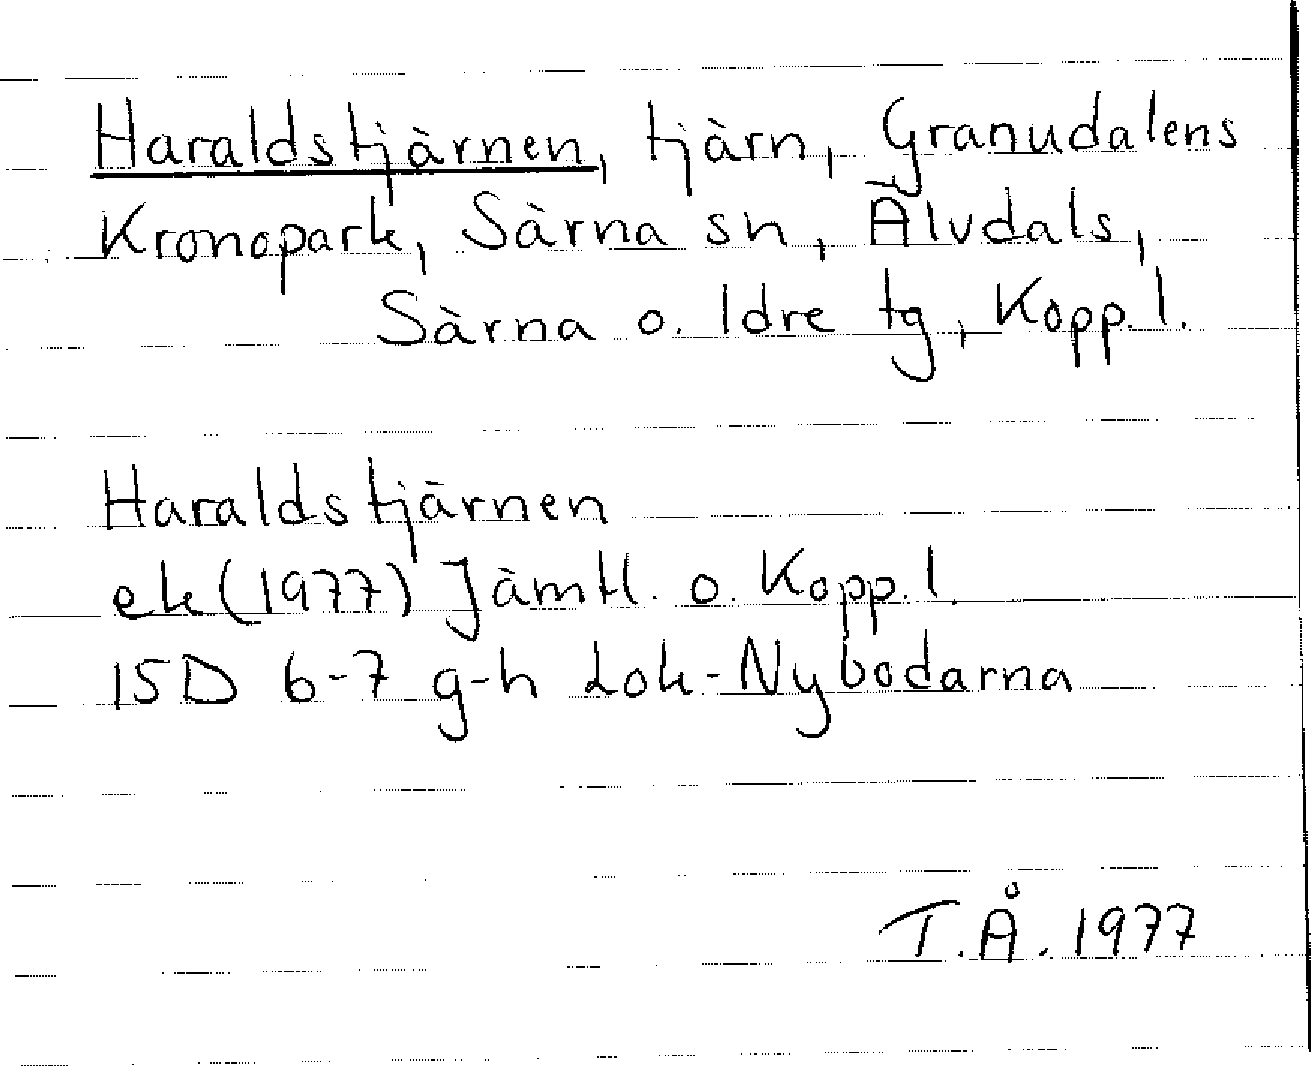 Haraldstjärnen, tjärn, Granudalens
Kronopark, Särna sn, Älvdals,
Särna o. Idre tg, Kopp.l.
Haraldstjärnen
ek (1977) Jämtl. o. Kopp.l.
15D 6-7 g-h Lok-Nybodarna
T.Å. 1977